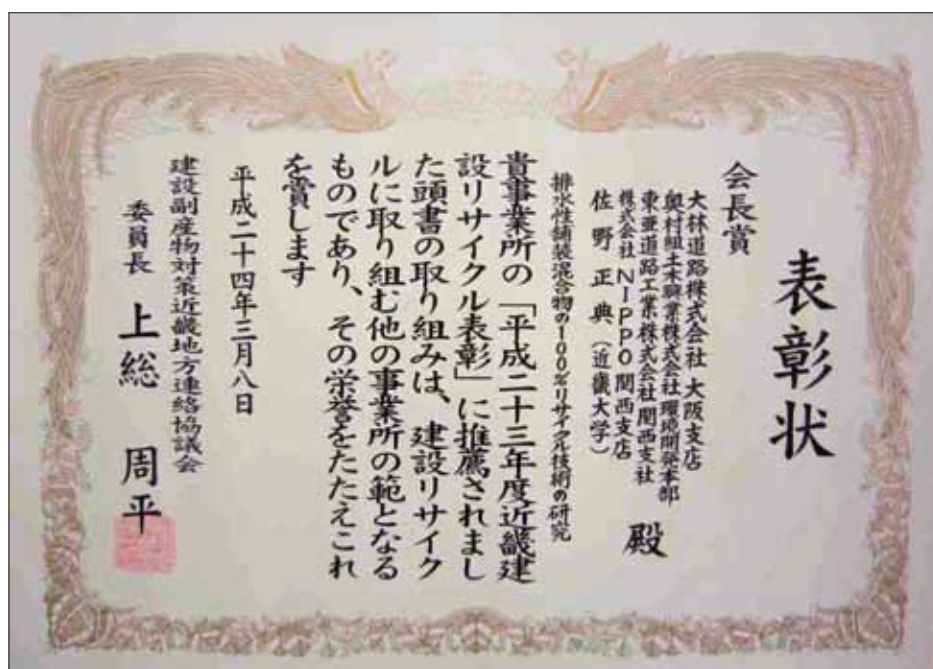 表彰状
会長賞
大林道路株式会社 大阪支店
奥村組土木興業株式会社環境開発本部
東亜道路工業株式会社関西支社
株式会社NIPPO関西支店
佐野正典(近畿大学)
殿
排水性舗装混合物の100%リサイクル技術の研究
貴事業所の「平成二十三年度近畿建
設リサイクル表彰」に推薦されまし
た頭書の取り組みは、建設リサイク
ルに取り組む他の事業所の範となる
ものであり、その栄誉をたたえこれ
を賞します
平成二十四年三月八日
建設副産物対策近畿地方連絡協議会
委員長 上総 周平